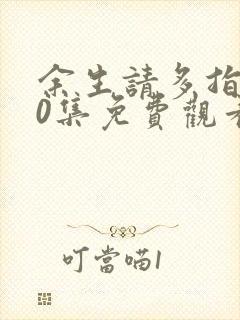 余生請多指
0集免費觀看
叮當喵1